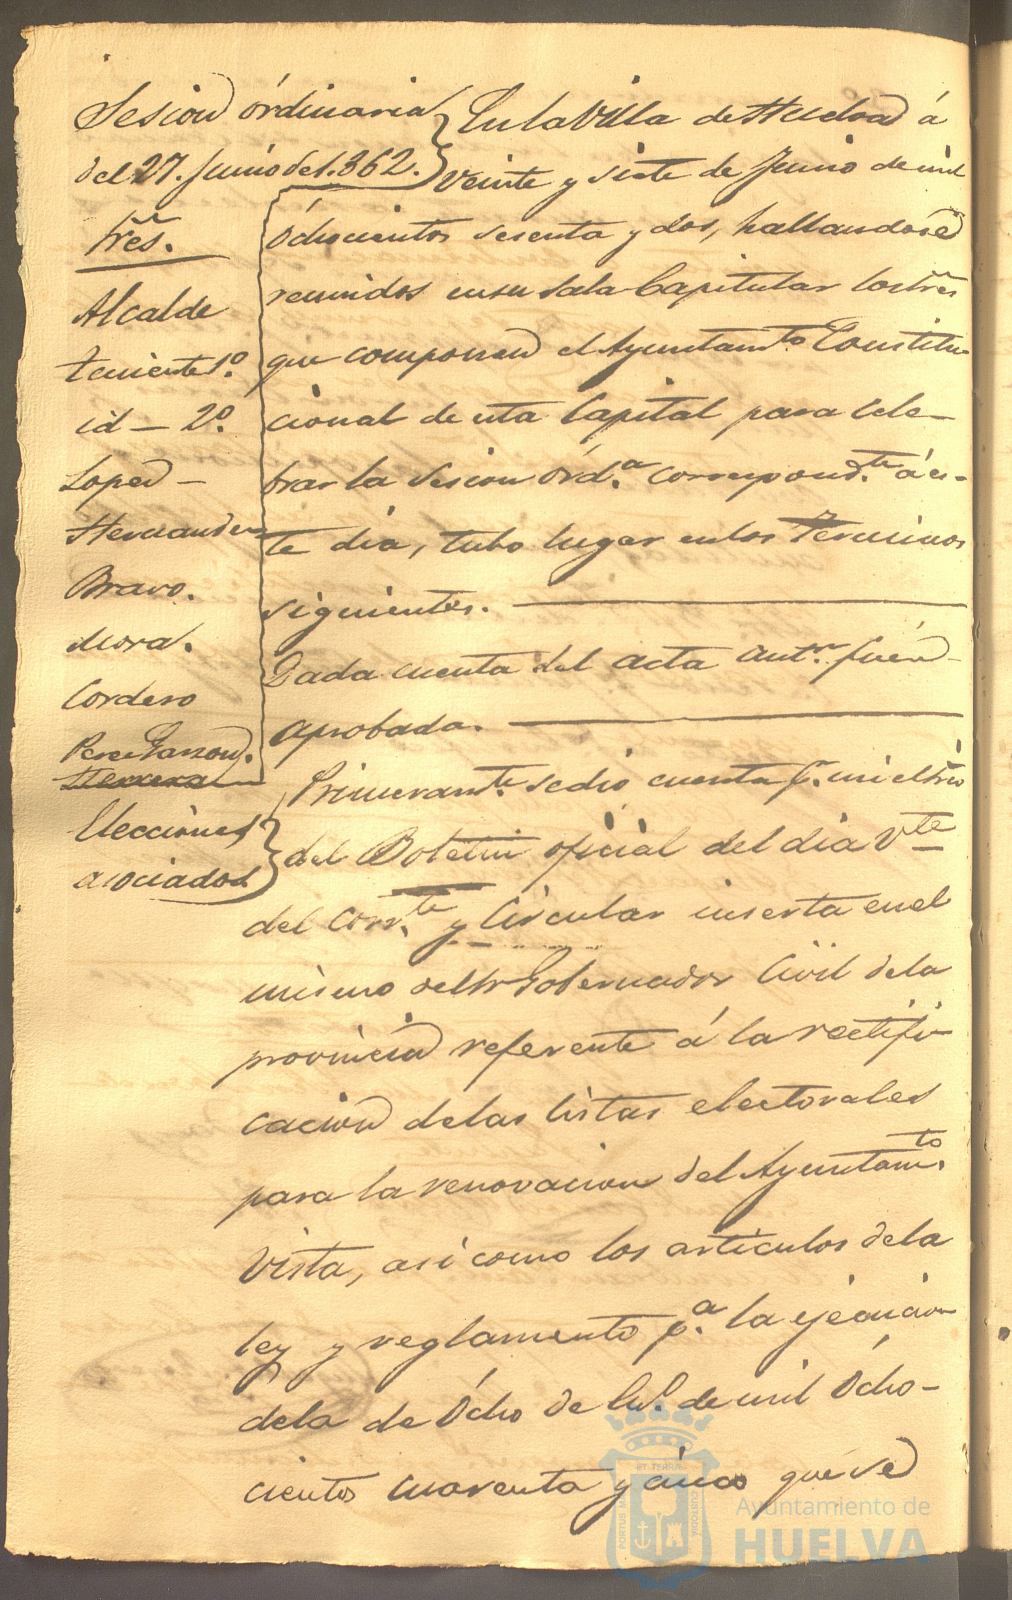 Sesion ordinaria
del 27. Junio de 1.862.
Sres.
Alcalde
teniente 1º.
id — 2º.
Lopez —
Hernandez
Bravo.
Mora.
Cordero
Perez Garzon.
Herrera
En la Villa de Huelva á
veinte y siete de Junio de mil
ochocientos sesenta y dos, hallandose
reunidos en su Sala Capitular los Sres
que componen el Ayuntamto. Constitu-
cional de esta Capital para cele-
brar la sesion órda. correspondte. á es-
te dia, tubo lugar en los terminos
siguientes.
Dada cuenta del acta antr. fué
aprobada.
Elecciones
asociados
Primeramte. se dio cuenta p. mi el Srio
del Boletin oficial del dia Vte
del corrte. y Circular inserta en el
mismo del Sr Gobernador Civil de la
provincia referente á la rectifi-
cacion de las listas electorales
para la renovacion del Ayuntamto.
Vista, asi como los articulos de la
ley y reglamento pa. la ejecucion
de la de Ocho de En.º de mil Ocho-
cientos cuarenta y cinco que se
Ayuntamiento de
HUELVA